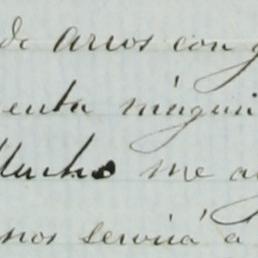 de arros con g
enta máqui
Mucho me a
nos servirá a